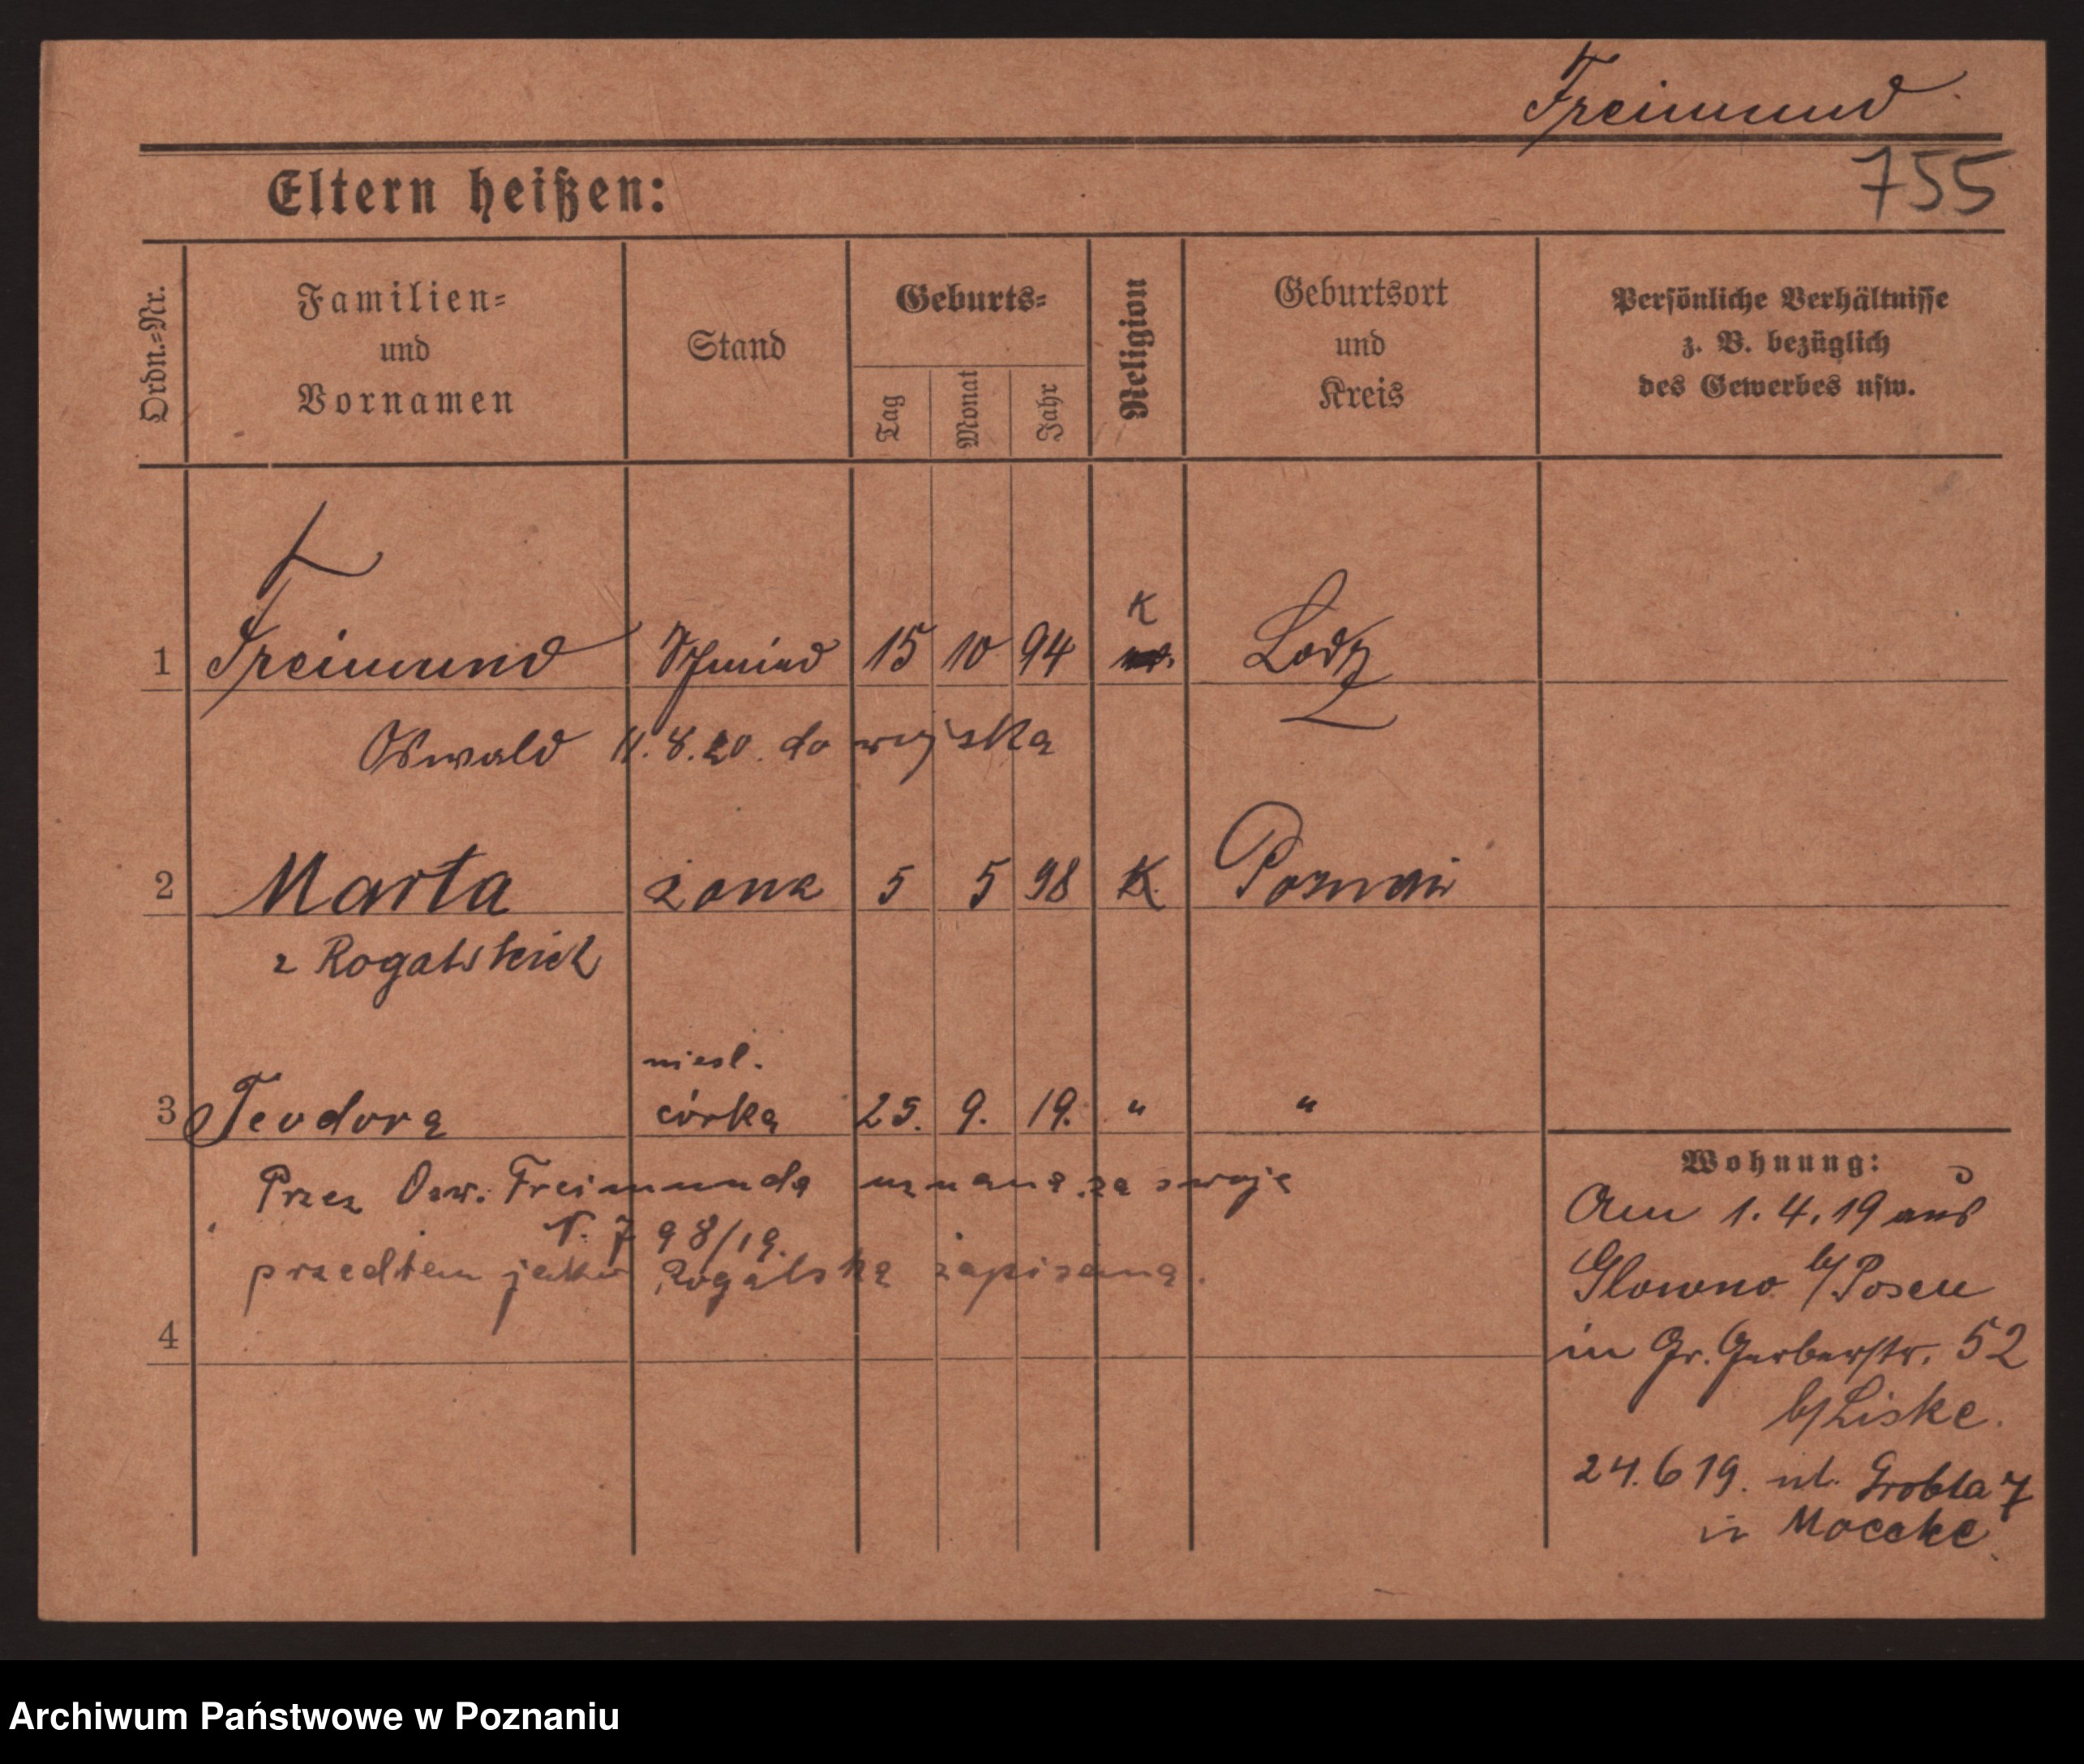 Freimund
755
Eltern heißen:
Ordn.=Nr.
Familien=
und
Vornamen
Stand
Geburts=
Tag
Monat
Jahr
Religion
Geburtsort
und
Kreis
Persönliche Verhältnisse
z. B. bezüglich
des Gewerbes usw.
1 Freimund Schmied 15 10 94 K Lodz
Oswald 11.8.20. do wojska
2 Marta żona 5 5 98 K. Poznań
z Rogalskich
niesl.
3 Teodora córka 25. 9. 19. " "
Przez Osw. Freimunda uznana za swoje
N. 798/19.
przedtem jako Rogalska zapisana.
4
Wohnung:
Am 1.4.19 aus
Glowno b/Posen
in Gr. Gerberstr. 52
b/Liske.
24.6 19. ul. Grobla 7
Archiwum Państwowe w Poznaniu